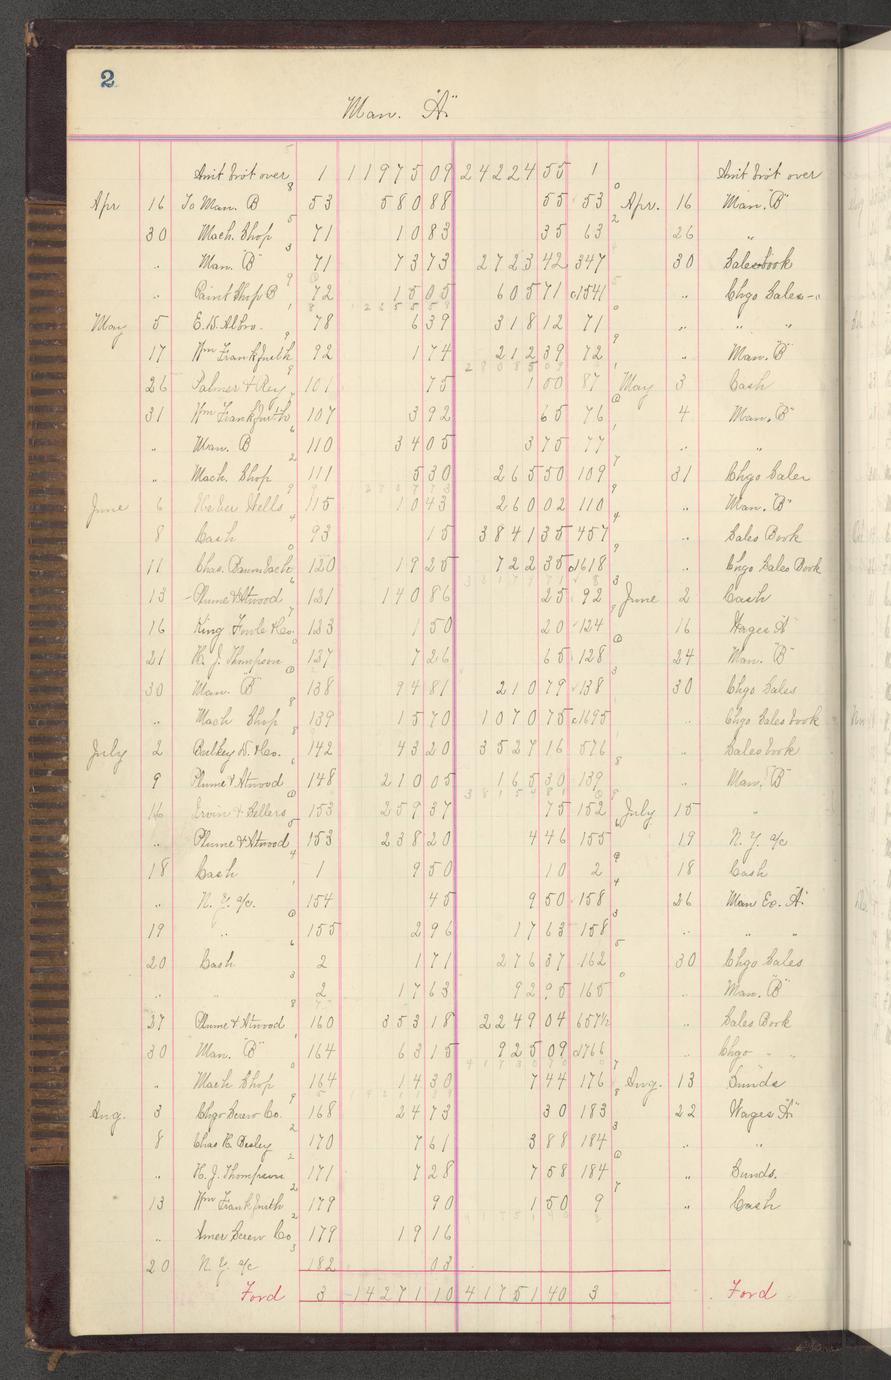 2
Man. "A"
Amt brot over 1 11975 09 24224 55 1 Amt brot over
Apr 16 To Man. B 53 580 88 55 53 Apr. 16 Man. "B"
30 Mach. Shop 71 10 83 35 63 26 "
" Man. "B" 71 73 73 2723 42 347 30 Salesbook
" Paint Shop B 72 15 05 605 71 c1541 " Chgo Sales "
May 5 E. W. Allro. 78 6 39 318 12 71 " " "
17 Wm Frankfurth 92 1 74 212 39 72 " Man. "B"
26 Palmer & Rey 101 75 1 00 87 May 3 Cash
31 Wm Frankfurth 107 3 92 65 76 4 Man. "B"
" Man. B 110 34 05 3 75 77 " "
" Mach. Shop 111 5 30 265 50 109 31 Chgo Sales
June 6 Heber Wells 115 10 43 260 02 110 " Man. "B"
8 Cash 93 15 3841 35 457 " Sales Book
11 Chas. Baumbach 120 19 25 722 35 c1618 " Chgo Sales Book
13 Plume & Atwood 131 140 86 25 92 June 2 Cash
16 King Fowle & Co. 133 1 50 20 124 16 Wages "A"
21 H. J. Thompson 137 7 26 65 128 24 Man. "B"
30 Man. "B" 138 94 81 210 79 138 30 Chgo Sales
" Mach Shop 139 15 70 1070 75 c1695 " Chgo Sales book
July 2 Bulkey W. & Co. 142 43 20 3527 16 576 " Salesbook
9 Plume & Atwood 148 210 05 165 30 139 " Man. "B"
16 Irvin & Sellers 153 259 37 75 152 July 15 "
" Plume & Atwood 153 238 20 4 46 155 19 N. Y. a/c
18 Cash 1 9 50 10 2 18 Cash
" N. Y. a/c. 154 45 9 50 158 26 Man Co. "A"
19 " 155 2 96 17 63 158 " " "
20 Cash 2 1 71 276 37 162 30 Chgo Sales
" " 2 17 63 92 95 165 " Man. "B"
27 Plume & Atwood 160 353 18 2249 04 657½ " Sales Book
30 Man. "B" 164 63 15 925 09 c1766 " Chgo " "
" Mach Shop 164 14 30 7 44 176 Aug. 13 Sunds
Aug. 3 Chgo Screw Co. 168 24 73 30 183 22 Wages "A"
8 Chas H. Besley 170 7 61 3 88 184 " "
" H. J. Thompson 171 7 28 7 58 184 " Sunds.
13 Wm Frankfurth 179 90 1 50 9 " Cash
" Amer Screw Co 179 19 16
20 N. Y. a/c 182 03
Ford 3 14271 10 41751 40 3 Ford